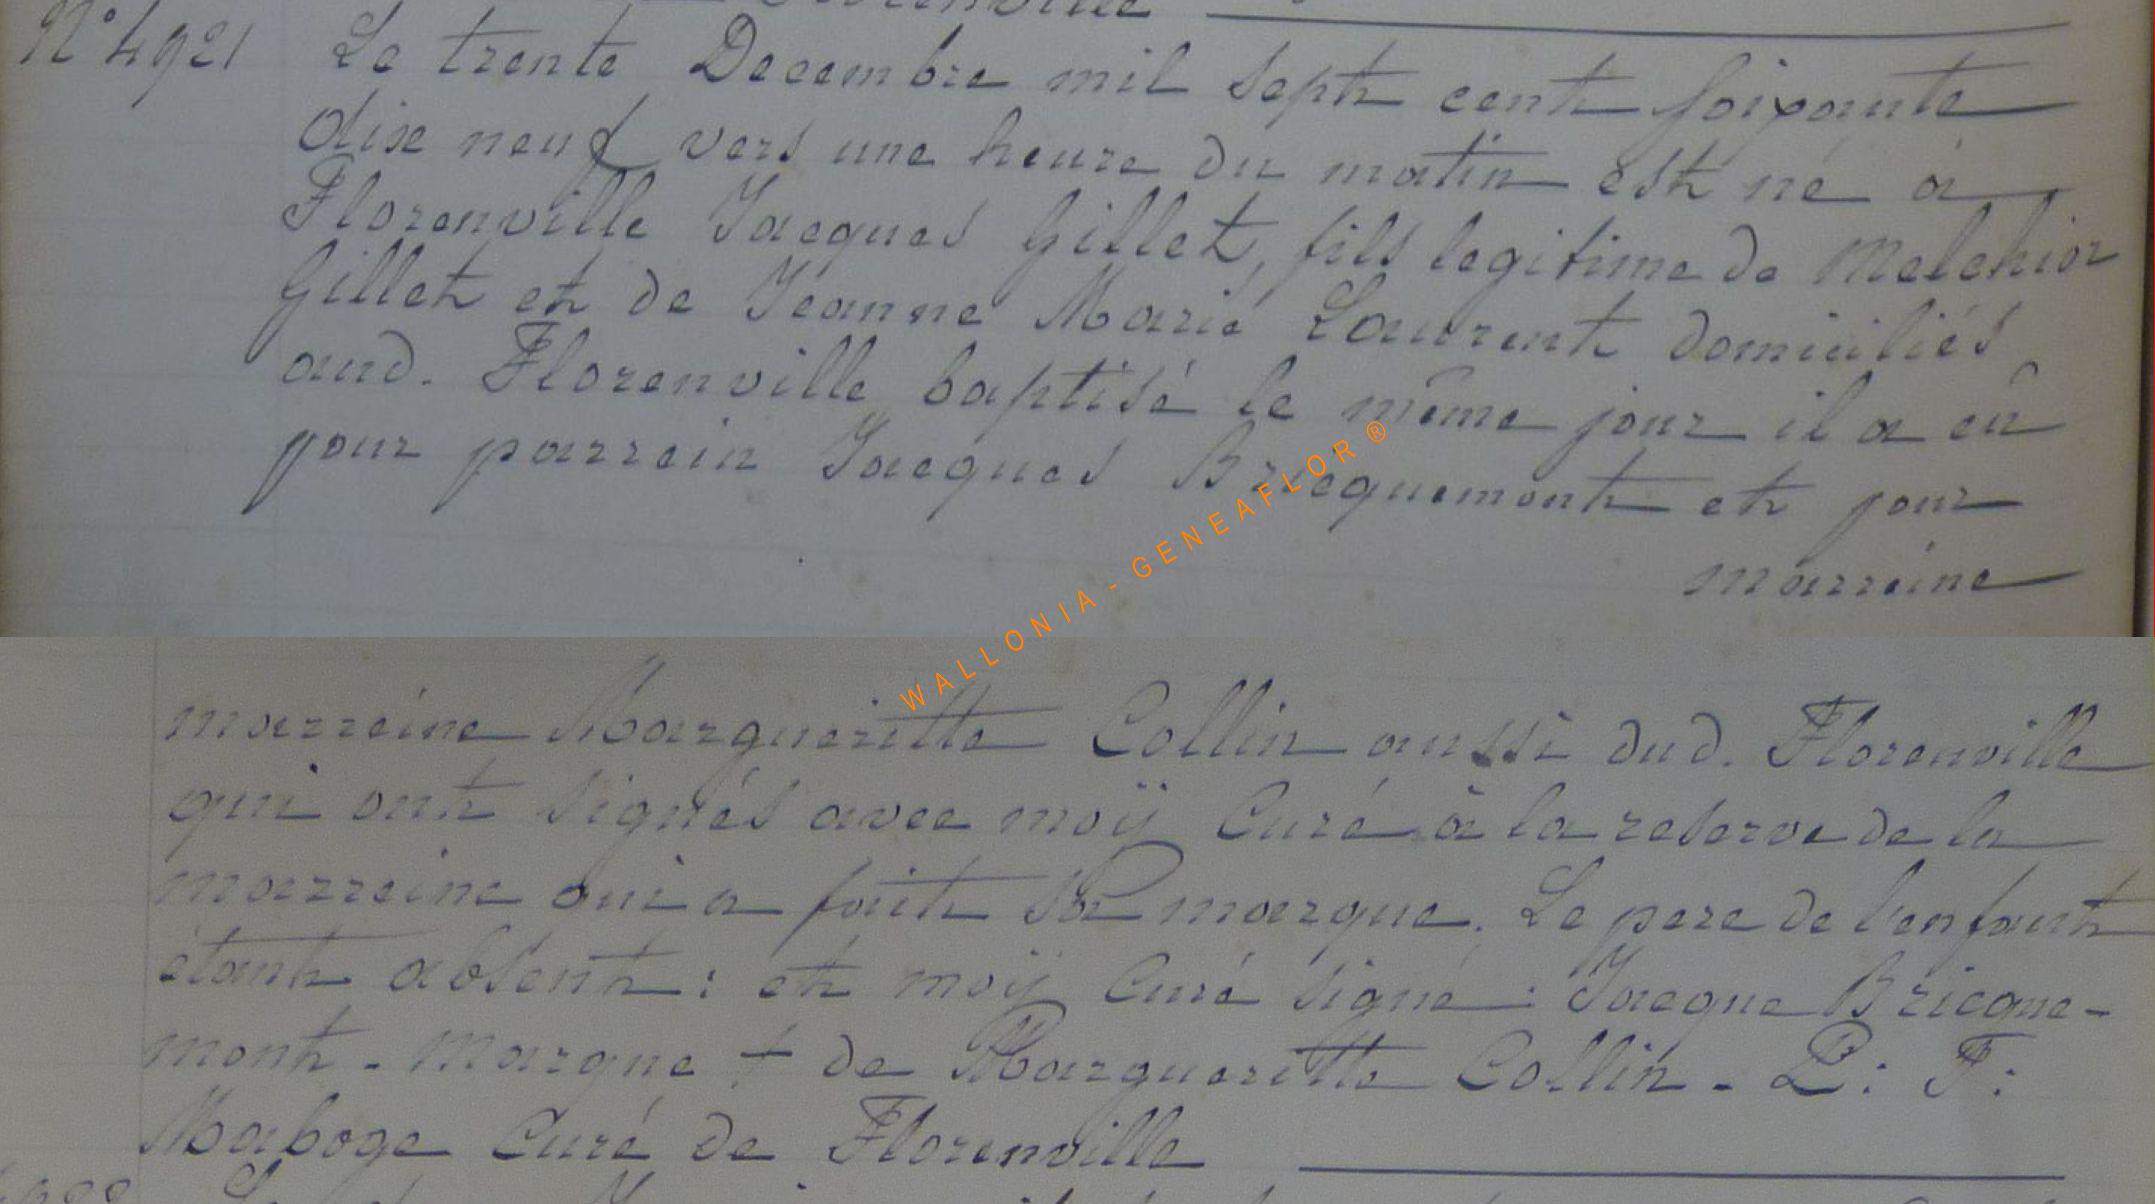 Florenville
N° 4921 Le trente Decembre mil sept cent soixante
dixe neuf vers une heure du matin est né à
Florenville Jacques Gillet, fils legitime de Melchior
Gillet et de Jeanne Marie Laurent domiciliés
aud. Florenville baptisé le même jour il a eû
pour parrein Jacques Bricquemont et pour
marreine
marreine Margueritte Collin aussi dud. Florenville
qui ont signés avec moÿ Curé à la reserve de la
marreine qui a fait sa marque. Le pere de l'enfant
étant absent : et moÿ Curé signé : Jacque Bricque-
mont - Marque + de Margueritte Collin - P : F :
Maboge Curé de Florenville
WALLONIA - GENEAFLOR ®